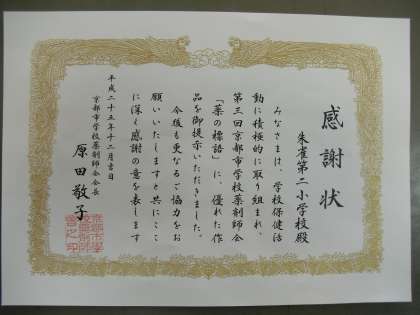 感謝状
朱雀第二小学校殿
みなさまは、学校保健活
動に積極的に取り組まれ、
第三回京都市学校薬剤師会
「薬の標語」に、優れた作
品を御提示いただきました。
今後も更なるご協力をお
願いいたしますと共にここ
に深く感謝の意を表します
平成二十五年十二月吉日
京都市学校薬剤師会会長
原田敬子